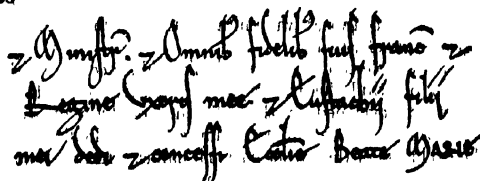 ⁊ Ministr̃. ⁊ Omnib᷒ fidelib᷒ suis franc̃ ⁊
Regine Vxoris mee ⁊ Eustachij filij
mei dedi ⁊ concessi Eccl̃ie Beate Marie